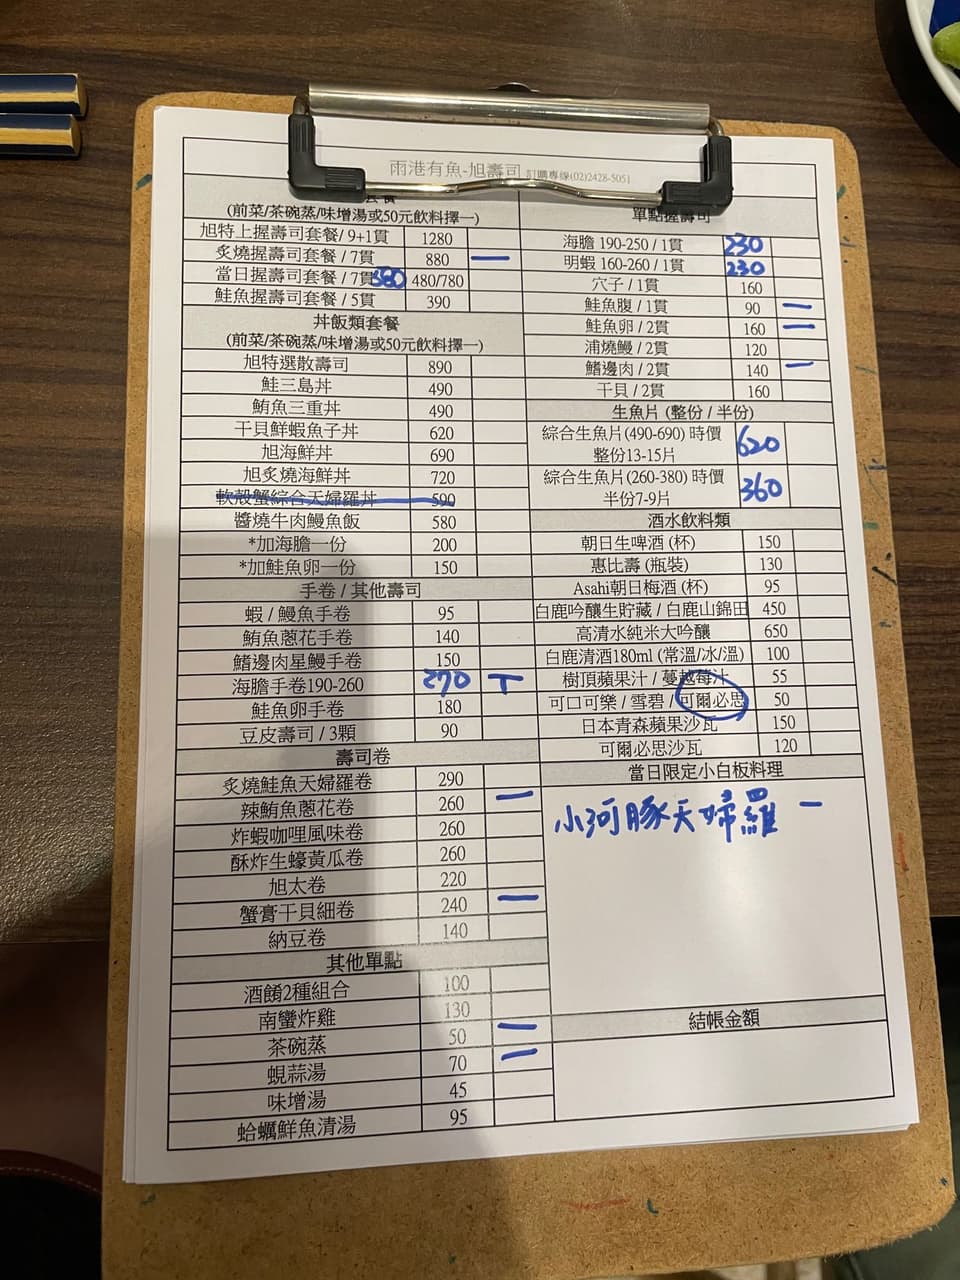 雨港有魚-旭壽司 訂購專線(02)2428-5051
套餐
(前菜/茶碗蒸/味增湯或50元飲料擇一)
旭特上握壽司套餐/ 9+1貫 1280
炙燒握壽司套餐 / 7貫 880 一
當日握壽司套餐 / 7貫 380 480/780
鮭魚握壽司套餐 / 5貫 390
丼飯類套餐
(前菜/茶碗蒸/味增湯或50元飲料擇一)
旭特選散壽司 890
鮭三島丼 490
鮪魚三重丼 490
干貝鮮蝦魚子丼 620
旭海鮮丼 690
旭炙燒海鮮丼 720
軟殼蟹綜合天婦羅丼 590
醬燒牛肉鰻魚飯 580
*加海膽一份 200
*加鮭魚卵一份 150
手卷 / 其他壽司
蝦 / 鰻魚手卷 95
鮪魚蔥花手卷 140
鰭邊肉星鰻手卷 150
海膽手卷190-260 270 丅
鮭魚卵手卷 180
豆皮壽司 / 3顆 90
壽司卷
炙燒鮭魚天婦羅卷 290
辣鮪魚蔥花卷 260 一
炸蝦咖哩風味卷 260
酥炸生蠔黃瓜卷 260
旭太卷 220
蟹膏干貝細卷 240 一
納豆卷 140
其他單點
酒餚2種組合 100
南蠻炸雞 130
茶碗蒸 50 一
蜆蒜湯 70 一
味增湯 45
蛤蠣鮮魚清湯 95
單點握壽司
海膽 190-250 / 1貫 230
明蝦 160-260 / 1貫 230
穴子 / 1貫 160
鮭魚腹 / 1貫 90 一
鮭魚卵 / 2貫 160 一
浦燒鰻 / 2貫 120
鰭邊肉 / 2貫 140 一
干貝 / 2貫 160
生魚片 (整份 / 半份)
綜合生魚片(490-690) 時價
整份13-15片 620
綜合生魚片(260-380) 時價
半份7-9片 360
酒水飲料類
朝日生啤酒 (杯) 150
惠比壽 (瓶裝) 130
Asahi朝日梅酒 (杯) 95
白鹿吟釀生貯藏 / 白鹿山錦田 450
高清水純米大吟釀 650
白鹿清酒180ml (常溫/冰/溫) 100
樹頂蘋果汁 / 蔓越莓汁 55
可口可樂 / 雪碧 / 可爾必思 50
日本青森蘋果沙瓦 150
可爾必思沙瓦 120
當日限定小白板料理
小河豚天婦羅 一
結帳金額